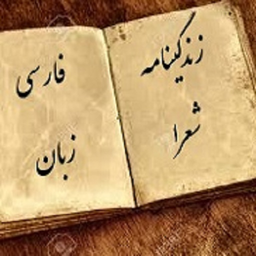 زندگینامه
شعرا
فارسی
زبان